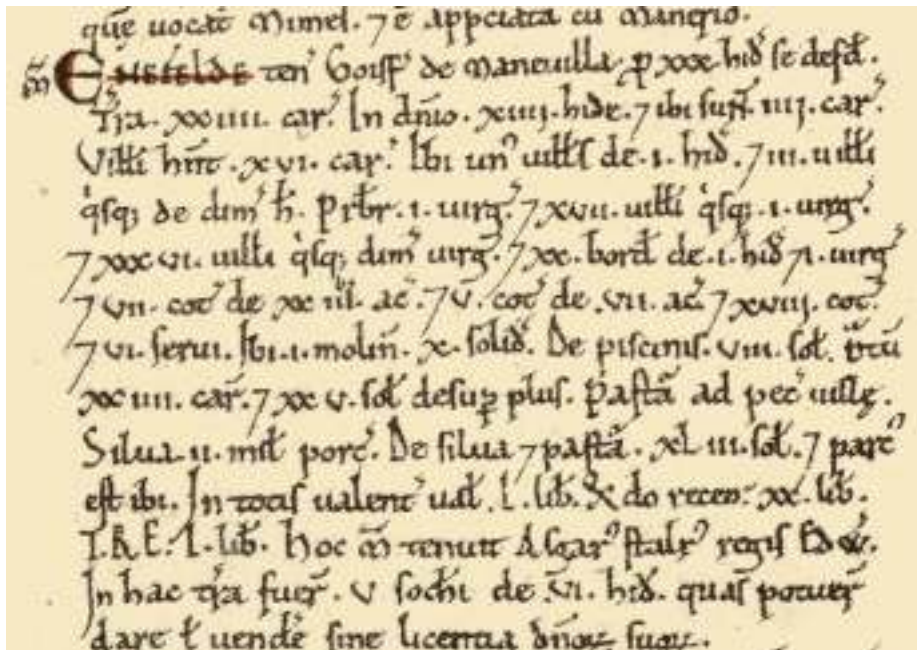 que uocat̃ Mimel. ⁊ ẽ app̃ciata cũ Man̄io.
m̃ ENEFELDE ten̄ Goisf̃ de Maneuilla. ꝓ xxx. hid̃ se defd̃.
T̃ra. xxiiii. car̃. In dñio. xiiii. hidæ. ⁊ ibi sun̄. iiii. car̃.
Villi hn̄t. xvi. car̃. Ibi un᾽ uills de. i. hid̃. ⁊ iii. uilli
q̇sq; de dim̃ h̃. Pr̃br. i. uirg̃. ⁊ xvii. uilli q̇sq; .i. uirg̃.
⁊ xxxvi. uilli q̇sq; dim̃ uirg̃. ⁊ xx. bord̃ de. i. hid̃ ⁊ i. uirg̃
⁊ vii. cot̃ de xxiii. ac̃. ⁊ v. cot̃ de. vii. ac̃ ⁊ xviii. cot̃.
⁊ vi. serui. Ibi. i. molin̄. x. solid̃. De piscinis. viii. sol̃. p̃tũ
xxiiii. car̃. ⁊ xxv. sol̃ desuꝑ plus. Pastã ad pec̃ uillę.
Silua. ii. mil̃ porc̃. De silua ⁊ pastã. xliii. sol̃. ⁊ parc᾽
est ibi. In totis ualent̃ ual̃. l. lib̃. Q̃do recep̃. xx. lib̃.
T.R.E. l. lib̃. Hoc m̃ tenuit Asgar᾽ stalr᾽ regis E. dw̃.
In hac t̃ra fuer̃. v sochi de. vi. hid̃. quas potuer̃
dare ł uendẽ sine licentia dñoꝝ suoꝝ.